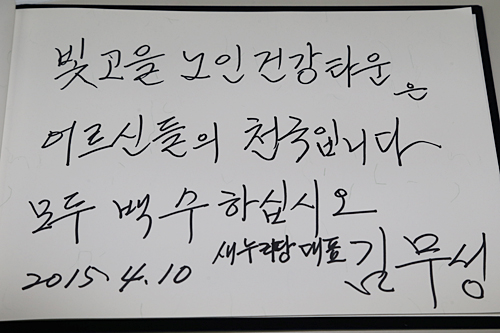 빛고을 노인건강타운은
어르신들의 천국입니다
모두 백수 하십시오
2015. 4. 10 새누리당 대표 김무성